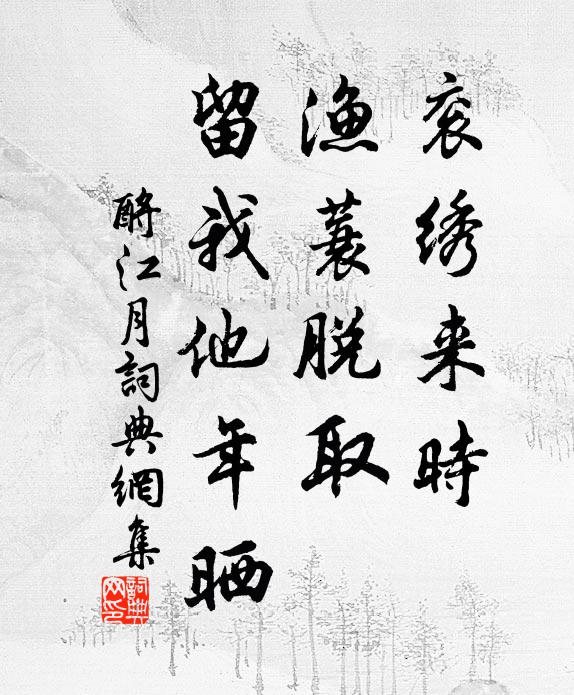 衮绣来时
渔蓑脱取
留我他年晒
酹江月詞典網集
詞典网印